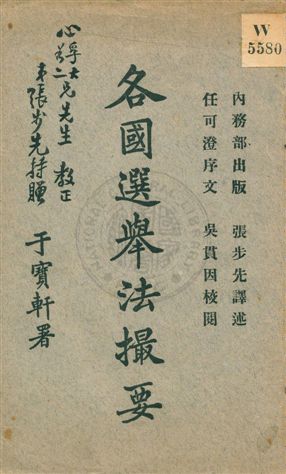 W
5580
內務部出版 張步先譯述
任可澄序文 吳貫因校閱
各國選舉法撮要
于寶軒署
二兄先生 教正
弟張步先持贈
NATIONAL CENTRAL LIBRARY